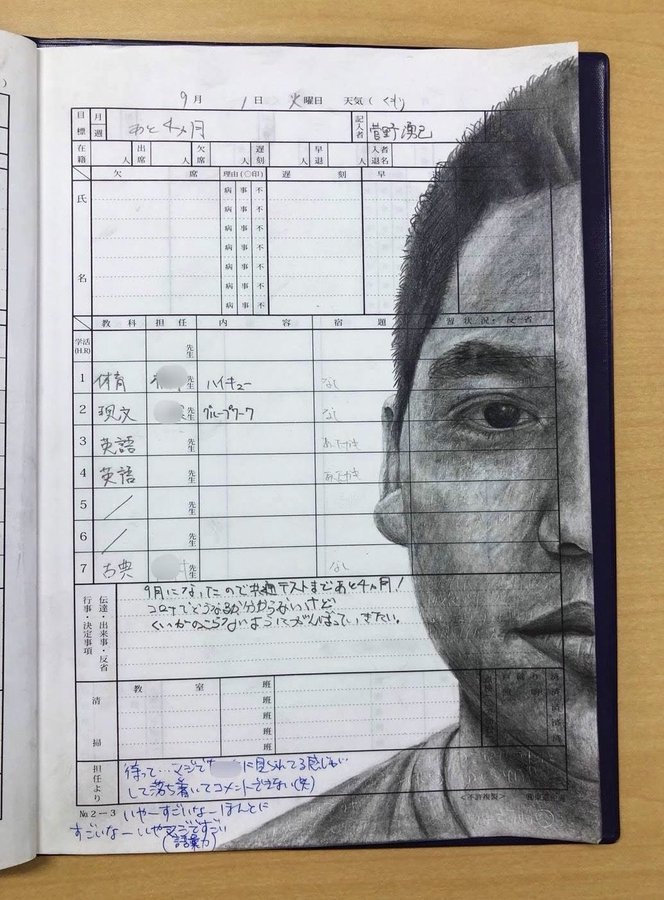 9月 1日 火曜日 天気(くもり)
目標 月 週 あと4ヵ月 記入者 菅野湧己
在籍 人 出席 人 欠席 人 遅刻 人 早退 人 入者退名
欠 席 理由(○印) 遅 刻 早
氏 名
病 事 不
病 事 不
病 事 不
病 事 不
病 事 不
病 事 不
病 事 不
教 科 担 任 内 容 宿 題 習 状 況・反 省
学活(H.R) 先生
1 体育 先生 ハイキュー なし
2 現文 先生 グループワーク なし
3 英語 先生
4 英語 先生
5 / 先生
6 / 先生
7 古典 先生 なし
伝達・出来事・反省
行事・決定事項
9月になったので共通テストまであと4ヵ月!
コロナでどうなるか分からないけど、
くいがのこらないようにがんばっていきたい。
清 掃 教 室 班
班
班
班
担任より
待って…マジで に見られてる感じがして落ち着いてコメントできない(笑)
No.2-3 いやーすごいなーほんとに
すごいなーいやマジですごい
(語彙力)
<不許複製>